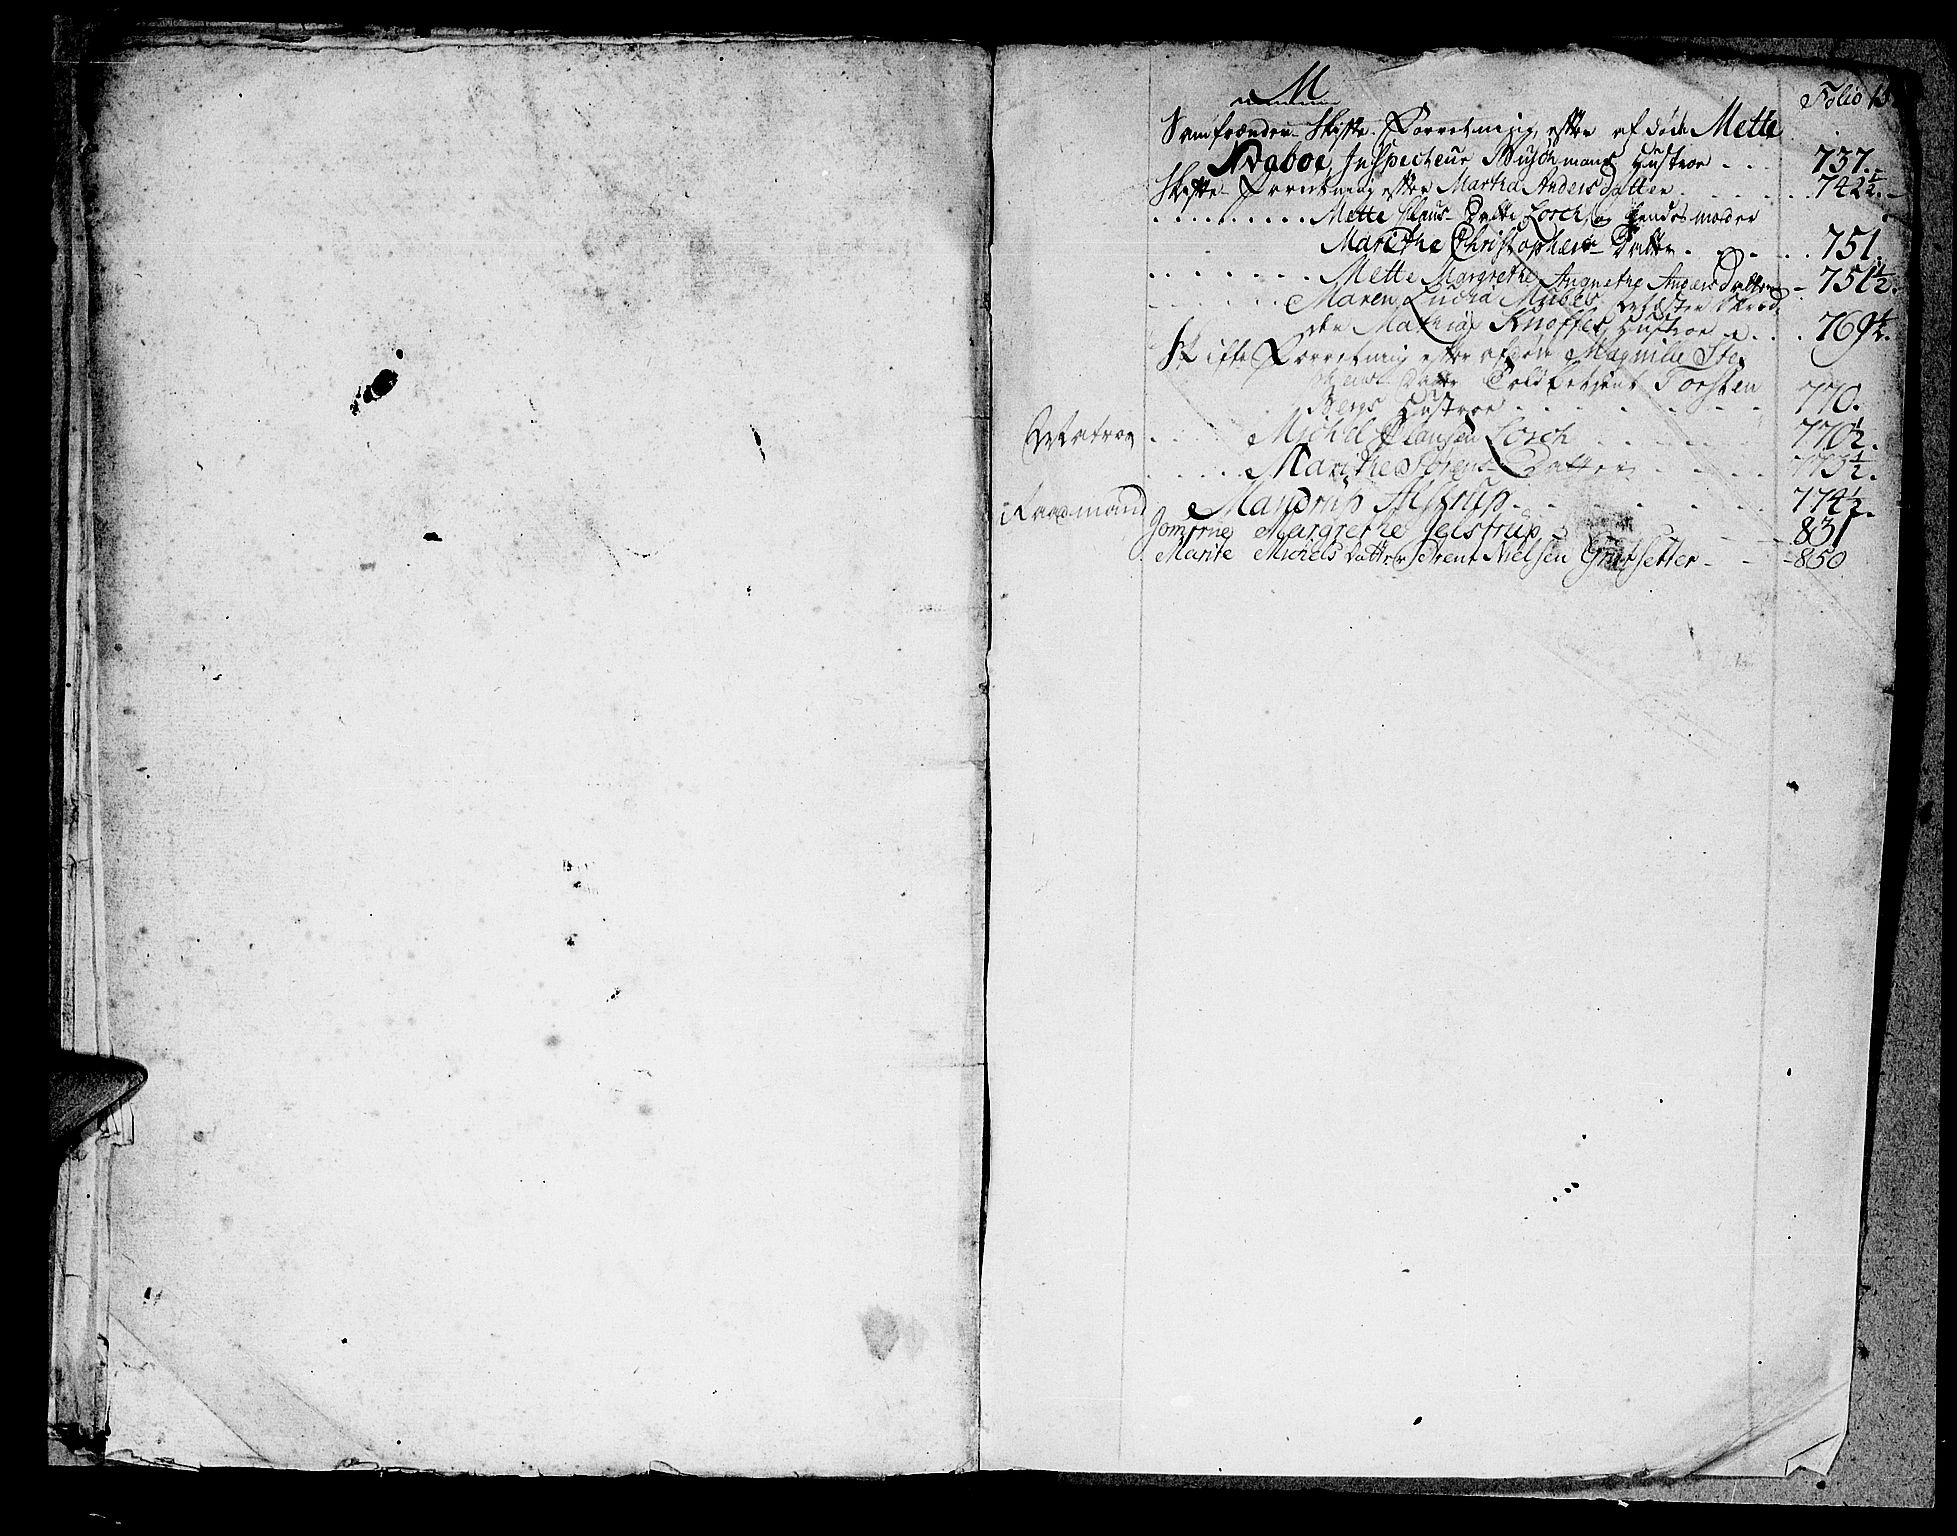 M
Folio 15
Samfrænder Skifte Forretning efter afdøde Mette
Svaboe, Inspecteur Buschmans Hustroe - - - 737.
Skifte Forretning efter Martha Anders Datter . . . 742½.
. . . . . . . . . . Mette Claus Datter Lorch, og hendes moder
Marithe Christophers Datter . . . . 751.
. . . . . . . Mette Margrethe Angnethe Anders datter - 751½.
Maren Lucia
Mathias Knoffes Hustroe . . . 769½.
Skifte Forretning efter afdøde Magnille Ste-
phens Datter Told betient Torsten
Bergs Hustroe . . . . . . 770.
Matros . . . . Michel Clausen Lorch . . . . 770½.
. . . . . Marithe Sørens Datter . . . . 773½.
Raadmand Mandrup Alstrup . . . . . . 774½.
Jomfrue Margrethe Jelstrup - - - 831
Marite Michels datter Arent Nielsen Gritsetter - - - 850